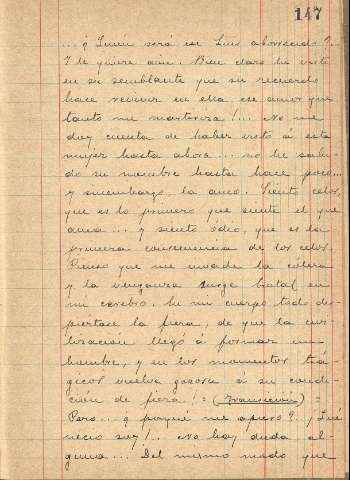 147
...¿ Quién será ese Luis aborrecido ?..
Y le quiere aun. Bien claro he visto
en su semblante que su recuerdo
hace revivir en ella ese amor que
tanto me martiriza !... No me
doy cuenta de haber visto á esta
mujer hasta ahora... no he sabi-
do su nombre hasta hace poco...
y sinembargo, la amo. Siento celos,
que es lo primero que siente el que
ama... y siento odio, que es la
primera consecuencia de los celos.
Pienso que me invade la cólera
y la venganza surge brutal en
mi cerebro. En mi cuerpo todo des-
piértase la fiera, de que la civi-
lización llegó á formar un
hombre, y en los momentos trá-
gicos vuelve gozosa á su condi-
ción de fiera ! = (Transición) =
Pero... ¿ porqué me apuro ?.. ¡ Qué
necio soy !.. No hay duda al-
guna... Del mismo modo que